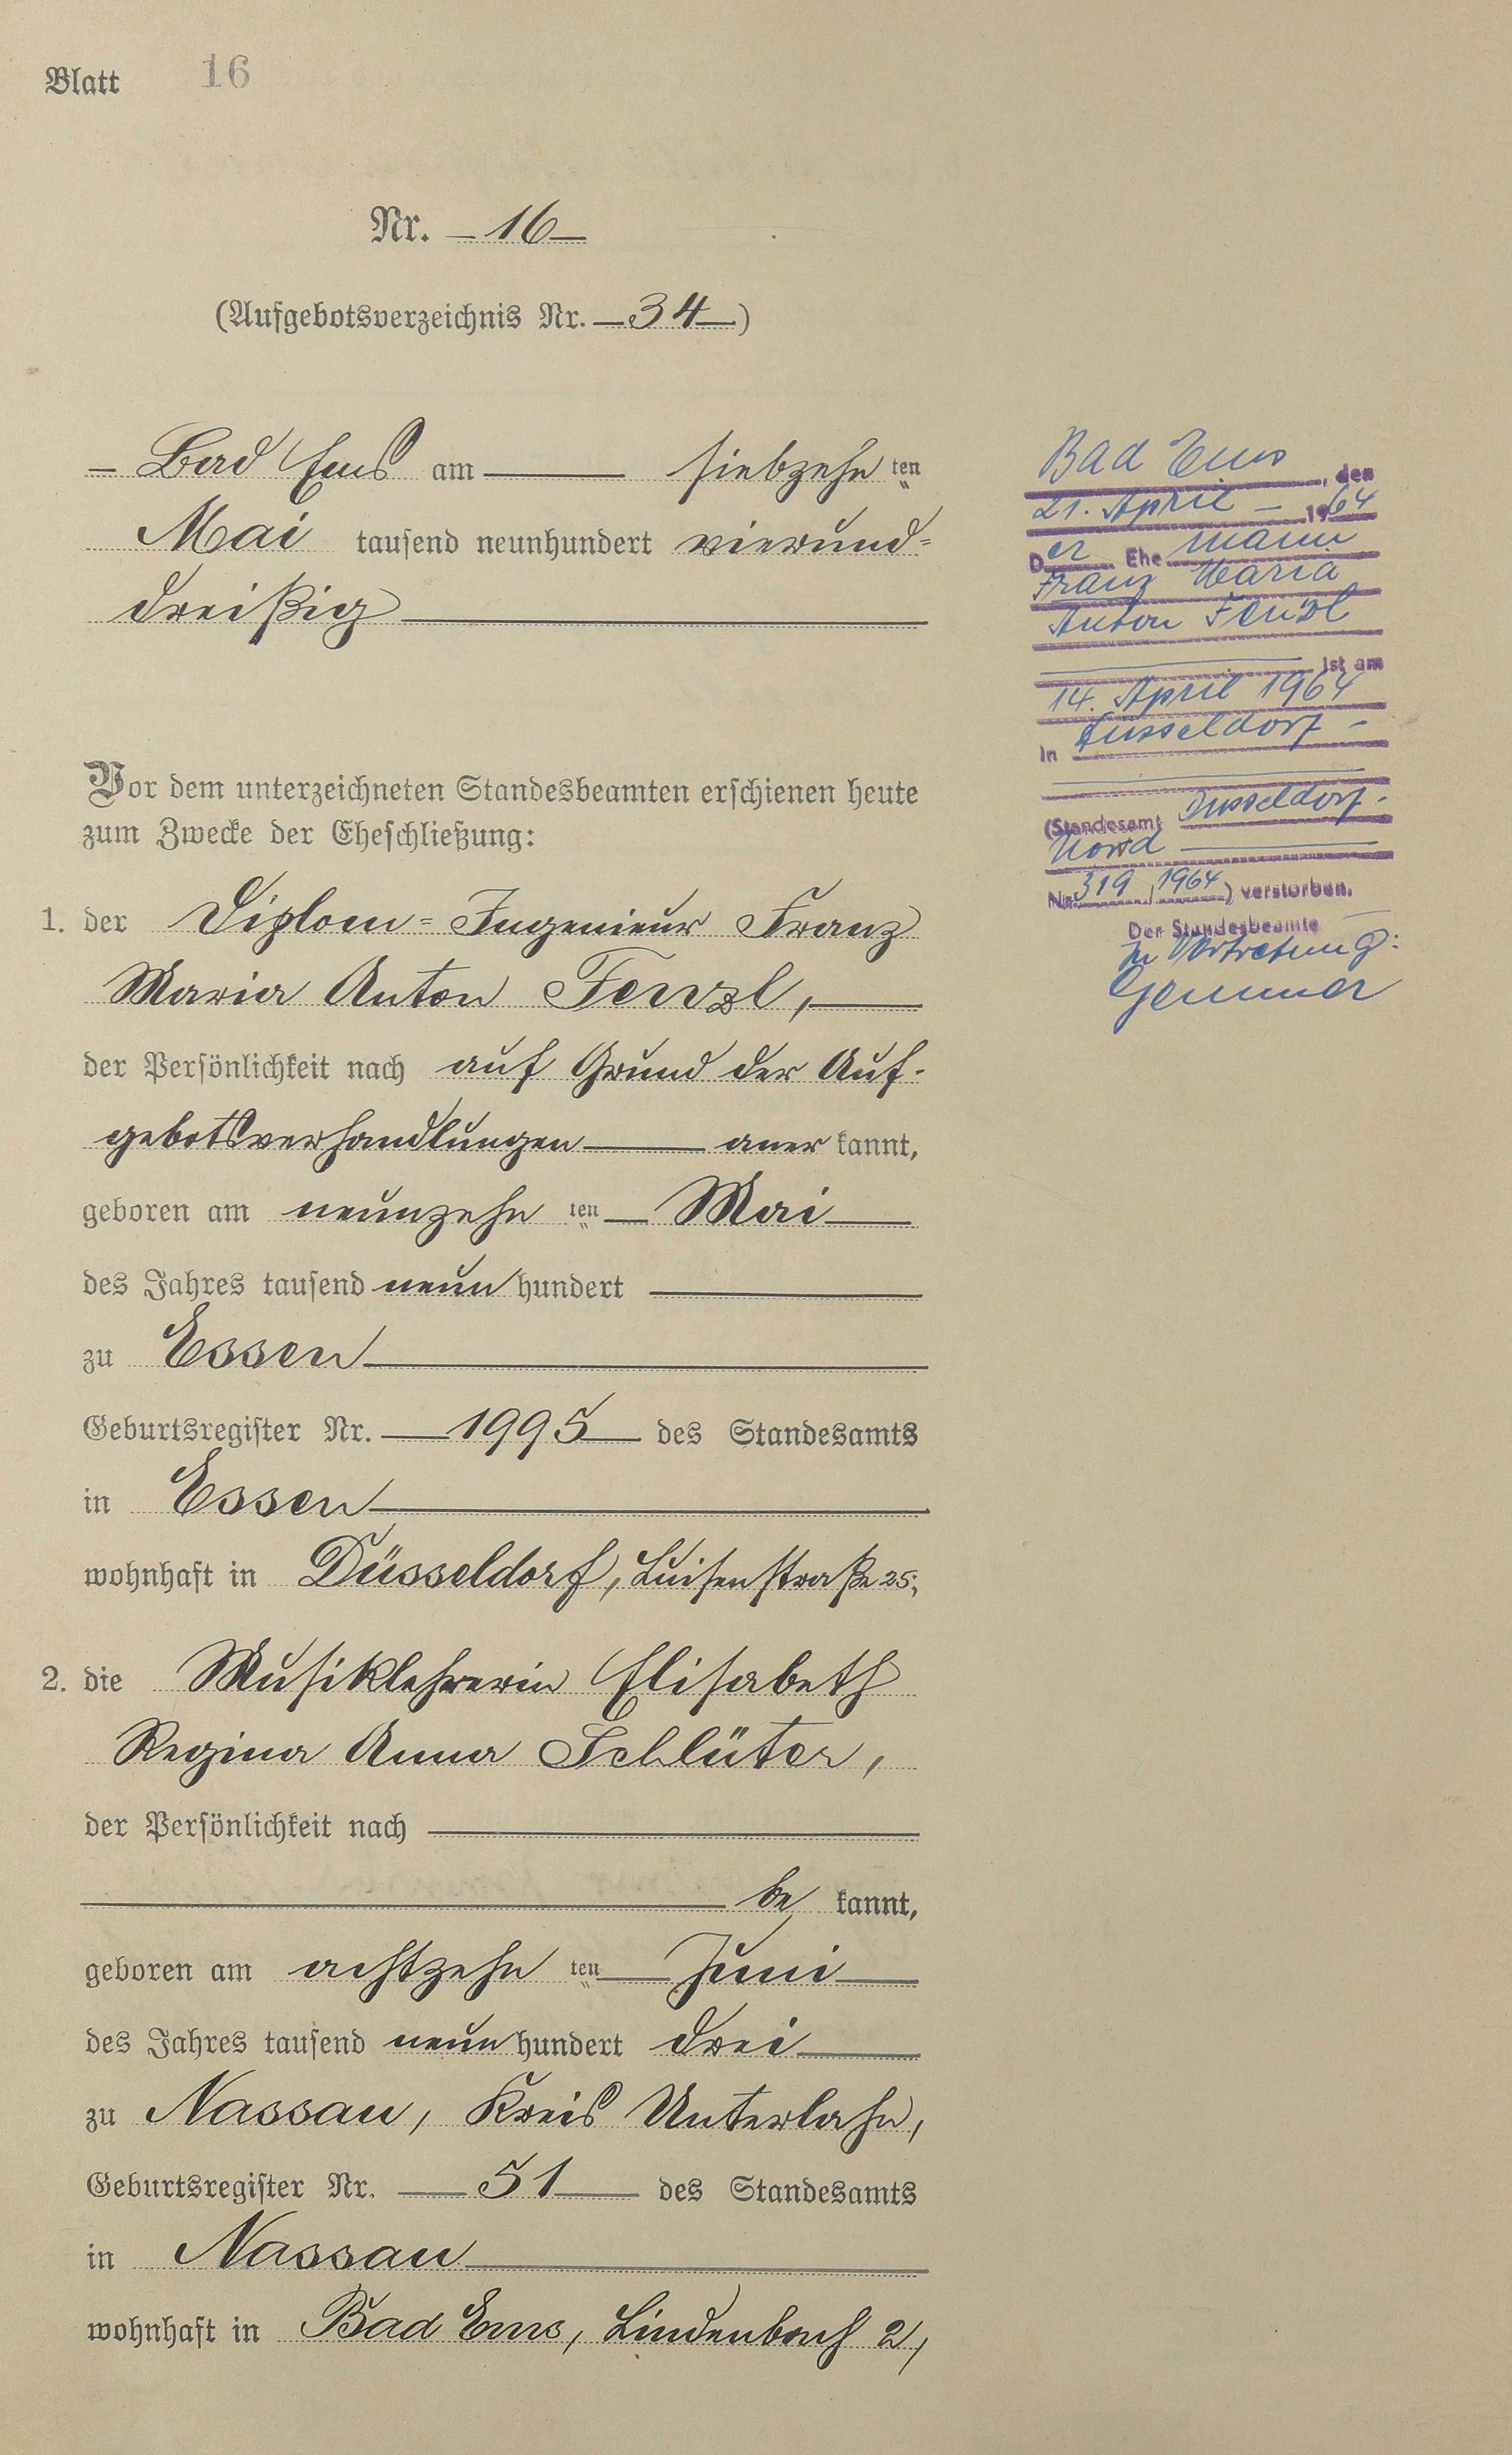 Blatt 16
Nr. 16
(Aufgebotsverzeichnis Nr. 34)
Bad Ems am siebzehn ten
Mai tausend neunhundert vierund=
dreißig
Vor dem unterzeichneten Standesbeamten erschienen heute
zum Zwecke der Eheschließung:
1. der Diplom=Ingenieur Franz
Maria Anton Fenzl,
der Persönlichkeit nach auf Grund der Auf-
gebotsverhandlungen aner kannt,
geboren am neunzehn ten Mai
des Jahres tausend neun hundert
zu Essen
Geburtsregister Nr. 1995 des Standesamts
in Essen
wohnhaft in Düsseldorf, Luisenstraße 25,
2. die Musiklehrerin Elisabeth
Regina Anna Schlüter,
der Persönlichkeit nach
be kannt,
geboren am achtzehn ten Juni
des Jahres tausend neun hundert drei
zu Nassau, Kreis Unterlahn,
Geburtsregister Nr. 51 des Standesamts
in Nassau
wohnhaft in Bad Ems, Lindenbach 2,
Bad Ems, den
21. April - 1964
Der Ehemann
Franz Maria
Anton Fenzl
ist am
14. April 1964
in Düsseldorf -
(Standesamt Düsseldorf-
Nord
Nr. 319/1964) verstorben.
Der Standesbeamte
In Vertretung: